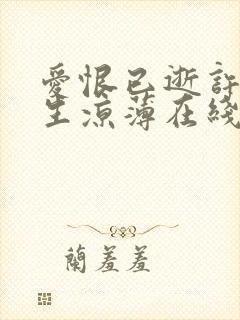 愛恨已逝許
生涼薄在綫
蘭羞羞